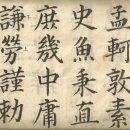 孟軻敦素
史魚秉直
庶幾中庸
謙勞謹勅